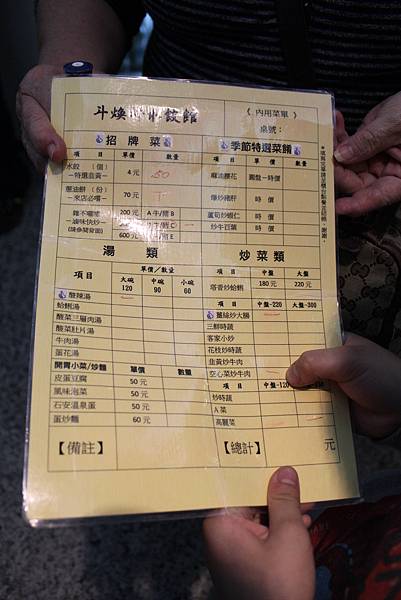 斗煥坪水餃館
《 內用菜單 》
桌號：
招牌菜
項目 單價 數量
水餃 (個) 4元 50
－特選韭黃－
蔥油餅 (份) 70元
－來店必嚐－
雜不囉嗦 200元 A半/辣B
滷味快炒
(請參閱背面) 600元 E
季節特選菜餚
項目 單價 數量
麻油腰花 圓盤－時價
爆炒豬肝 時價
蘆筍炒蝦仁 時價
炒牛豆葉 時價
湯類
項目 單價/數量
大碗 中碗 小碗
120 90 60
酸辣湯
蛤蜊湯
酸菜三層肉湯
酸菜肚片湯
牛肉湯
蛋花湯
開胃小菜/炒麵 單價 數量
皮蛋豆腐 50元
風味泡菜 50元
石安溫泉蛋 50元
蛋炒麵 60元
炒菜類
項目 中盤 大盤
塔香炒蛤蜊 180元 220元
項目 中盤-220 大盤-300
薑絲炒大腸
三鮮時蔬
客家小炒
花枝炒時蔬
韭黃炒牛肉
空心菜炒牛肉
項目 中盤-120
炒時蔬
A菜
高麗菜
【備註】
【總計】 元